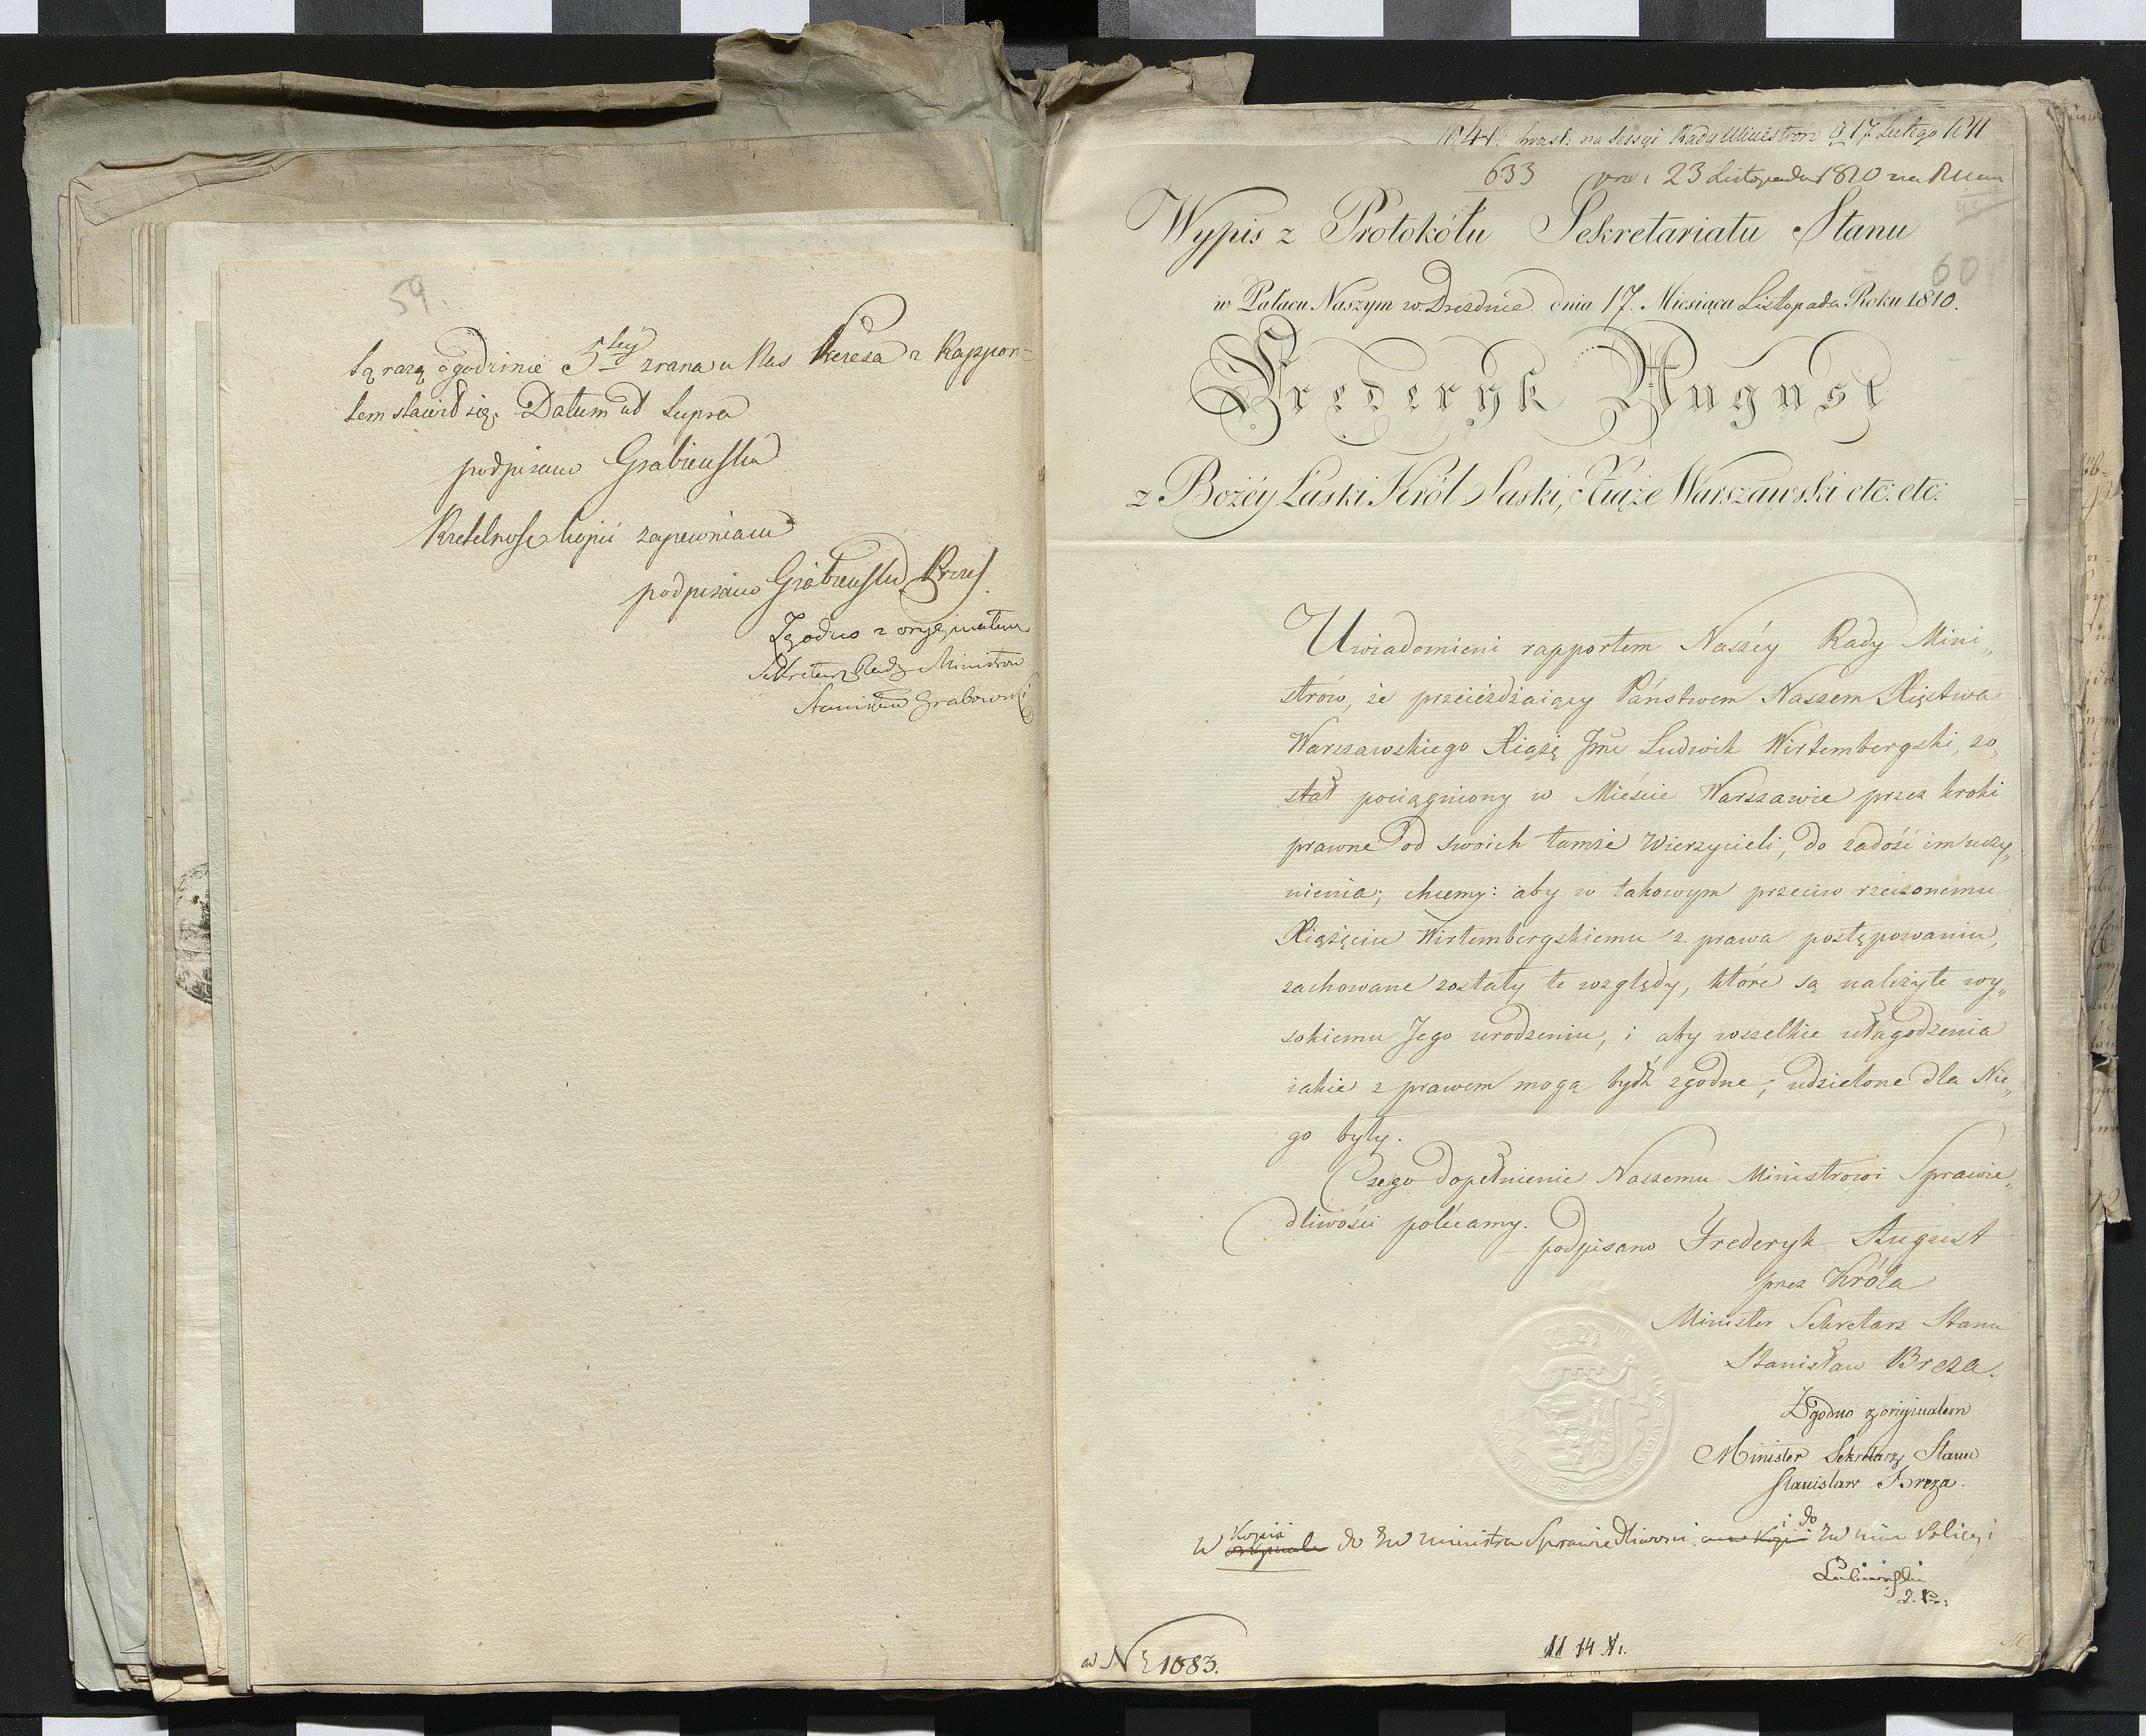 59.
tąrazą ogodzinie 5tey zrana u Nas Prezesa z Rappor=
tem stawił się. Datum ut Supra
podpisano Grabieński
Rzetelność kopii zapewniam
podpisano Grabieński Prezes
Zgodno z oryginałem
Sekretarz Rady Ministrów
Stanisław Grabowski
na Sessyi Rady Ministrów d 17 Lutego 1811
633 23 Listopada 1810
Wypis z Protokółu Sekretariatu Stanu
60
w Pałacu Naszym w Dreźdnie dnia 17. Miesiąca Listopada Roku 1810.
Frederyk August
z Bożéy Łaski Król Saski, Xiąże Warszawski etc: etc:
Uwiadomieni rapportem Naszéy Rady Mini„
strów, że przeieżdżaiący Państwem Naszem Xięstwa
Warszawskiego Xiążę Jmć Ludwik Wirtembergski, zo„
stał pociągniony w Mieście Warszawie przez kroki
prawne od swoich tamże Wierzycieli, do zadość im uczy„
nienia; chcemy: aby w takowym przeciw rzeczonemu
Xiążęciu Wirtembergskiemu z prawa postępowaniu,
zachowane zostały te względy, które są należyte wy„
sokiemu Jego urodzeniu, i aby wszelkie ułagodzenia
iakie z prawem mogą bydź zgodne, udzielone dla Nie„
go były.
Czego dopełnienie Naszemu Ministrowi Sprawie„
dliwości polecamy.
podpisano Frederyk August
przez Króla
Minister Sekretarz Stanu
Stanisław Breza.
Zgodno z oryginałem
Minister Sekretarz Stanu
Stanisław Breza.
Kopia i do
w oryginale do JW ministra Sprawiedliwości Kopii JW min Policyi
Łubieński
ad N 1083.